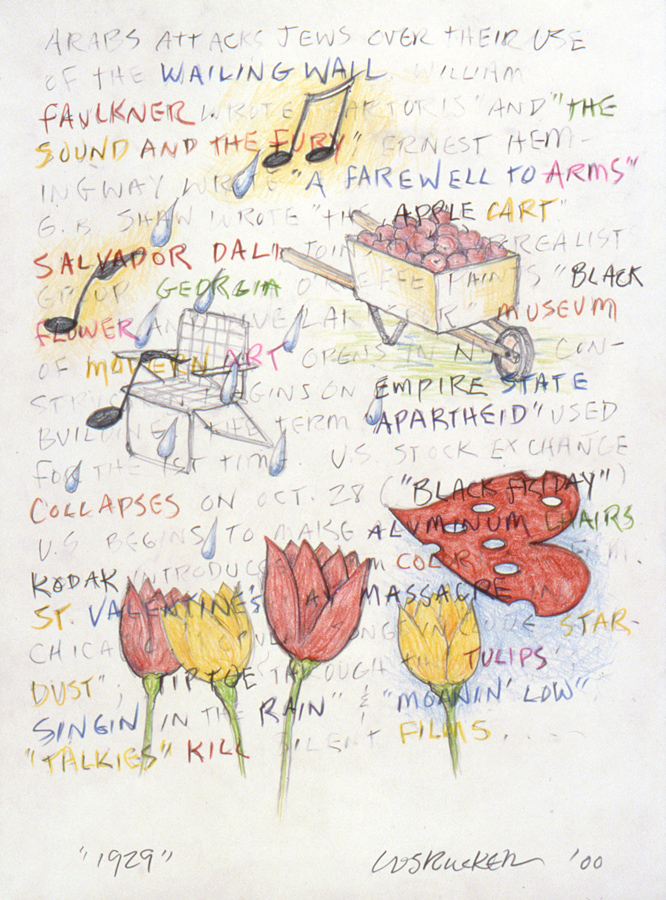 ARABS ATTACKS JEWS OVER THEIR USE
OF THE WAILING WALL. WILLIAM
FAULKNER WROTE "SARTORIS" AND "THE
SOUND AND THE FURY", ERNEST HEM-
INGWAY WROTE "A FAREWELL TO ARMS"
G.B. SHAW WROTE "THE APPLE CART"
SALVADOR DALI JOINS SURREALIST
GROUP. GEORGIA O'KEEFFE PAINTS "BLACK
FLOWER AND BLUE LARKSPUR" MUSEUM
OF MODERN ART OPENS IN N.Y. CON-
STRUCTION BEGINS ON EMPIRE STATE
BUILDING. THE TERM "APARTHEID" USED
FOR THE 1ST TIME. U.S. STOCK EXCHANGE
COLLAPSES ON OCT. 28 ("BLACK FRIDAY")
U.S. BEGINS TO MAKE ALUMINUM CHAIRS
KODAK INTRODUCES COLOR FILM.
ST. VALENTINE'S DAY MASSACRE IN
CHICAGO. SONGS INCLUDE STAR-
DUST", "TIPTOE THROUGH THE TULIPS"
SINGIN IN THE RAIN" & "MOANIN' LOW".
"TALKIES" KILL SILENT FILMS....
"1929"
'00